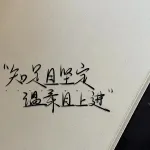 "知足且坚定
温柔且上进"